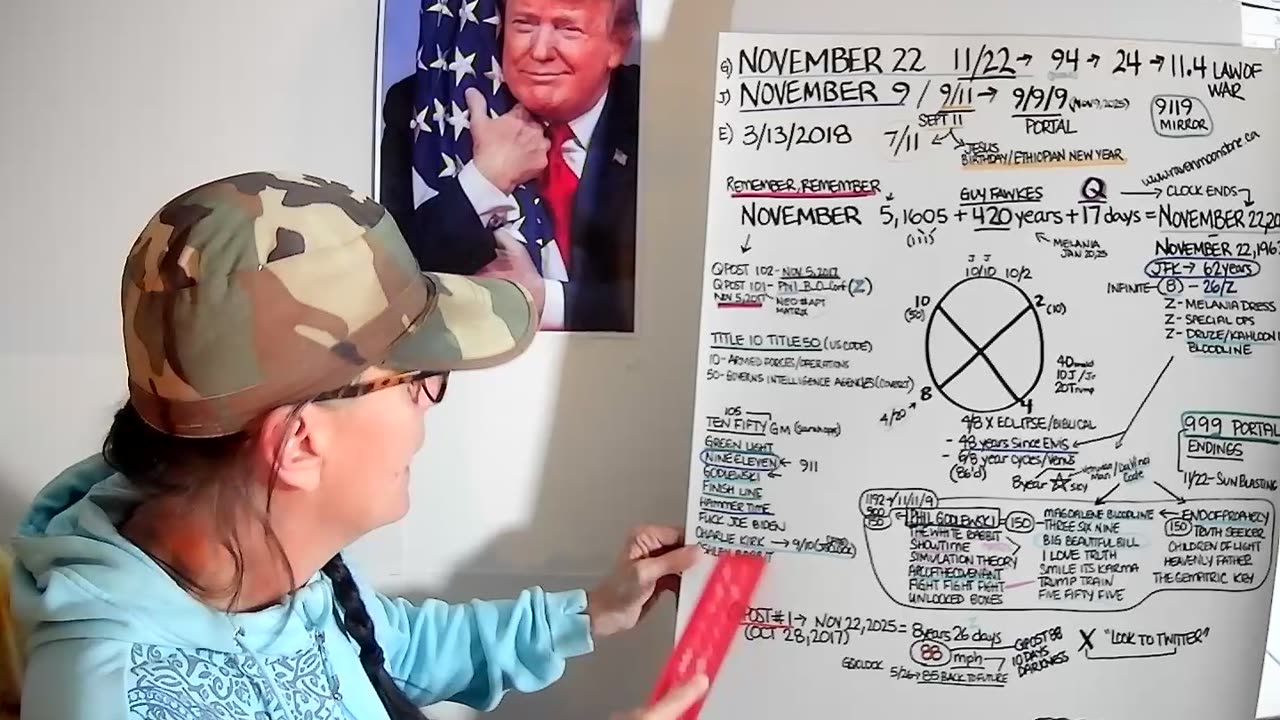 G) NOVEMBER 22 11/22→ 94→ 24→11.4 LAW OF WAR
J) NOVEMBER 9 / 9/11→ 9/9/9 (NOV 9, 2025)
SEPT 11 PORTAL
9119 MIRROR
E) 3/13/2018 7/11
JESUS BIRTHDAY/ETHIOPIAN NEW YEAR
www.ravenmoonstone.ca
REMEMBER, REMEMBER GUY FAWKES Q → CLOCK ENDS
NOVEMBER 5, 1605 + 420 years + 17 days = NOVEMBER 22, 20
MELANIA JAN 20, 25
NOVEMBER 22, 196
JFK → 62 years
INFINITE (8) - 26/Z
Z - MELANIA DRESS
Z - SPECIAL OPS
Z - DRUZE/KAHLOONI BLOODLINE
QPOST 102 - NOV 5, 2017
QPOST 101 -
NOV 5, 2017
MATRIX
TITLE 10 TITLE 50 (US CODE)
10 - ARMED FORCES/OPERATIONS
50 - GOVERNS INTELLIGENCE AGENCIES (COVERT)
J J
10/10 10/2
10
(50)
2
(10)
8
4
4/20
4 Donald
10 J / Jr
20 Trump
4/8 X ECLIPSE/BIBLICAL
- 48 years Since Elvis
- 6/8 year cycles/Venus
(86'd) 8 year SKY
Man / DaVinci Code
999 PORTAL
ENDINGS
11/22 - SUN BLASTING
105
TEN FIFTY GM
GREEN LIGHT
NINE ELEVEN ← 911
GODLEWSKI
FINISH LINE
HAMMER TIME
FUCK JOE BIDEN
CHARLIE KIRK → 9/10
RABBIT
1192 → 11/11/9
150
PHIL GODLEWSKI - (150)
THE WHITE RABBIT
SHOWTIME
SIMULATION THEORY
ARC OF THE COVENANT
FIGHT FIGHT FIGHT
UNLOCKED BOXES
MAGDALENE BLOODLINE
THREE SIX NINE
BIG BEAUTIFUL BILL
I LOVE TRUTH
SMILE ITS KARMA
TRUMP TRAIN
FIVE FIFTY FIVE
END OF PROPHECY
150 TRUTH SEEKER
CHILDREN OF LIGHT
HEAVENLY FATHER
THE GEMATRIC KEY
POST #1 → NOV 22, 2025 = 8 years 26 days
(OCT 28, 2017)
88 mph
QPOST 88
10 DAYS DARKNESS
X "LOOK TO TWITTER"
5/26 → 85 BACK TO FUTURE